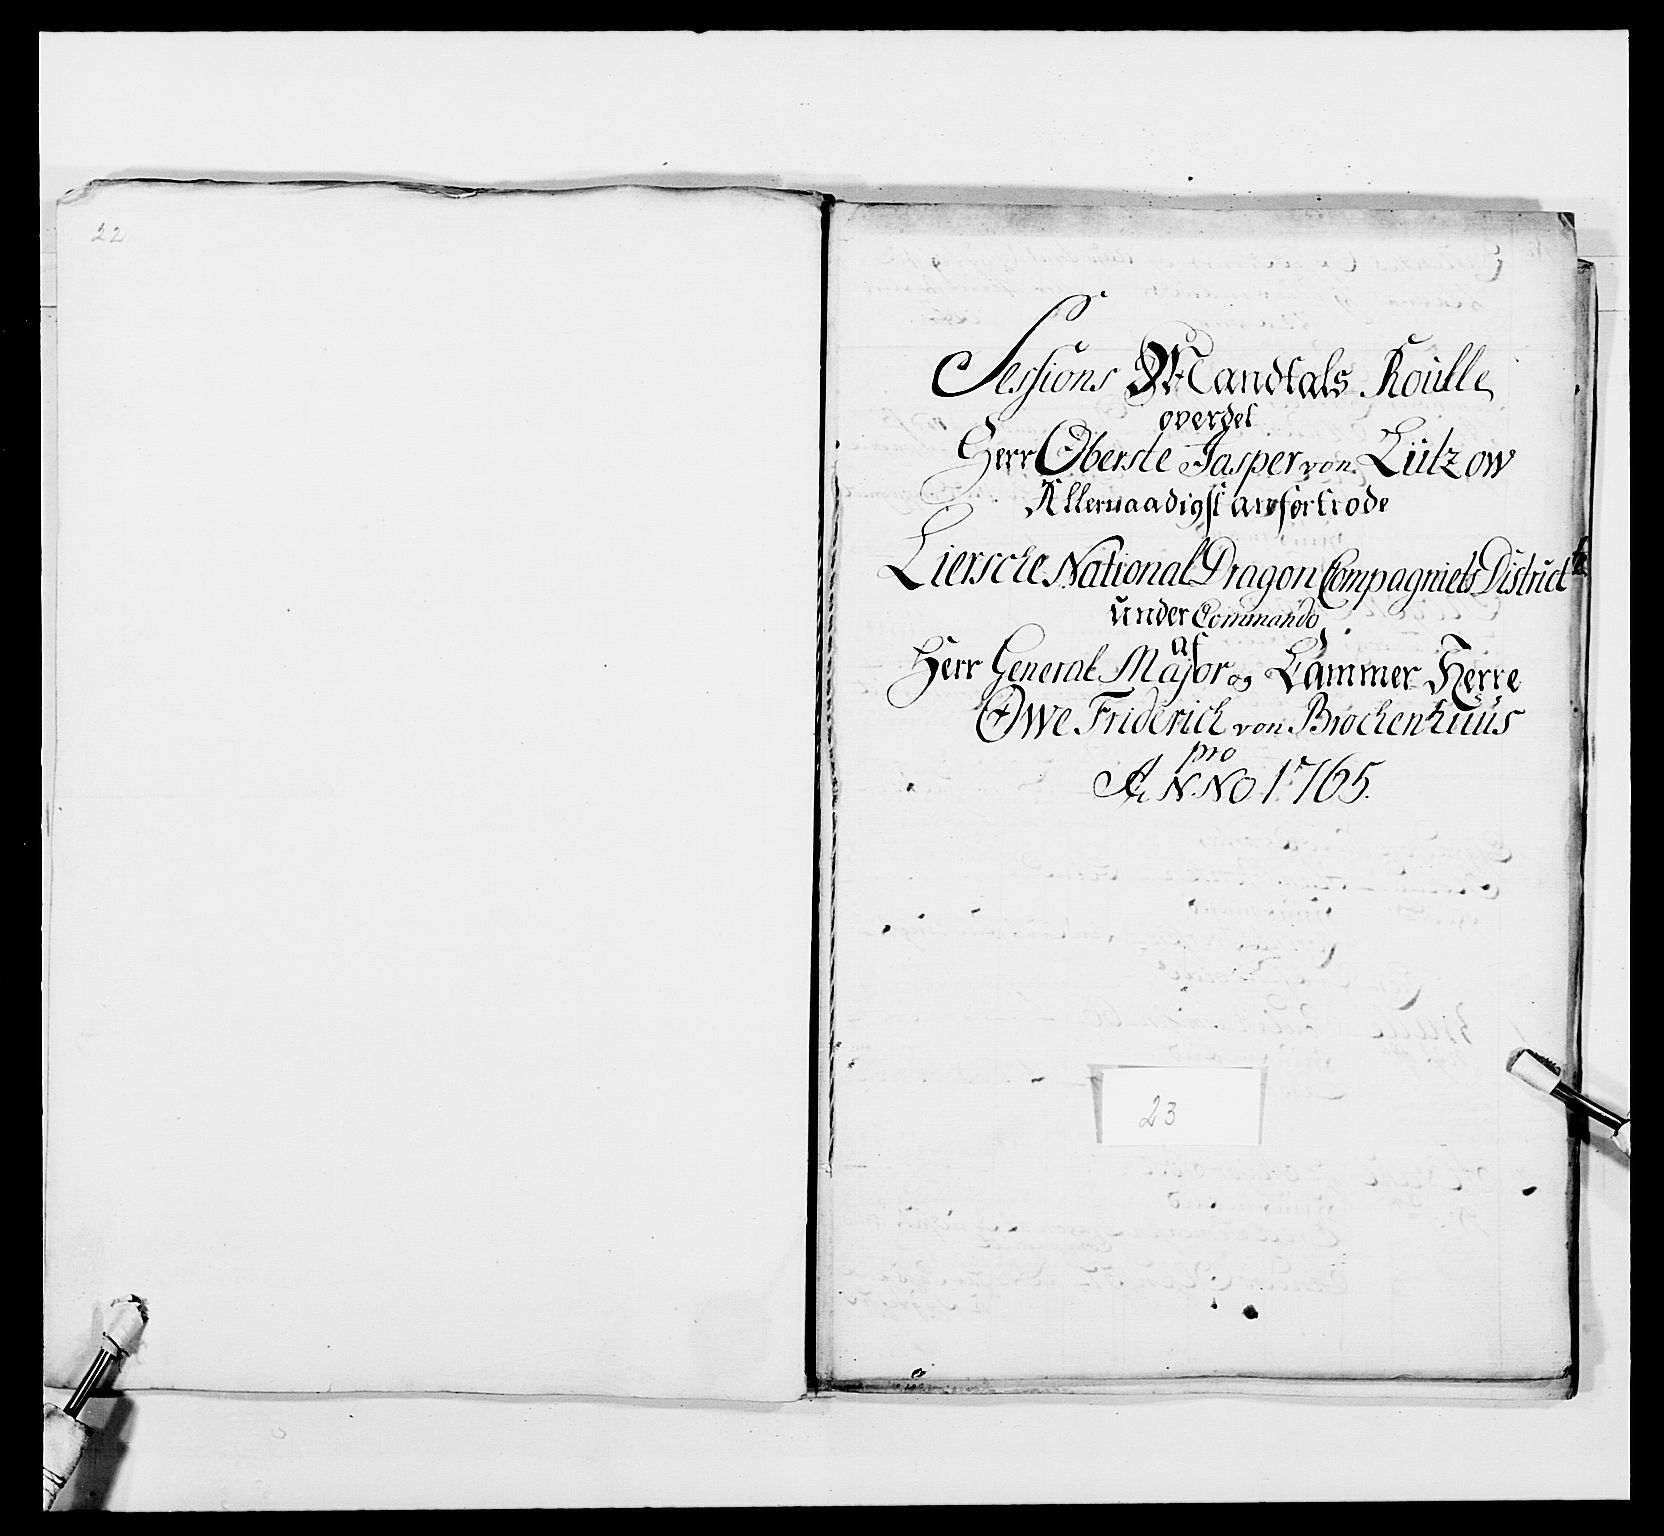 22
Sessions Mandtals Roulle
over det
Herr Oberste Jasper von Lützow
Allernaadigst anfortrode
Liersche National Dragon Compagniets District
under Commando
af
Herr General Major og Cammer Herre
Owe Friderich von Brockenhuus
pro
ANNO 1765.
23